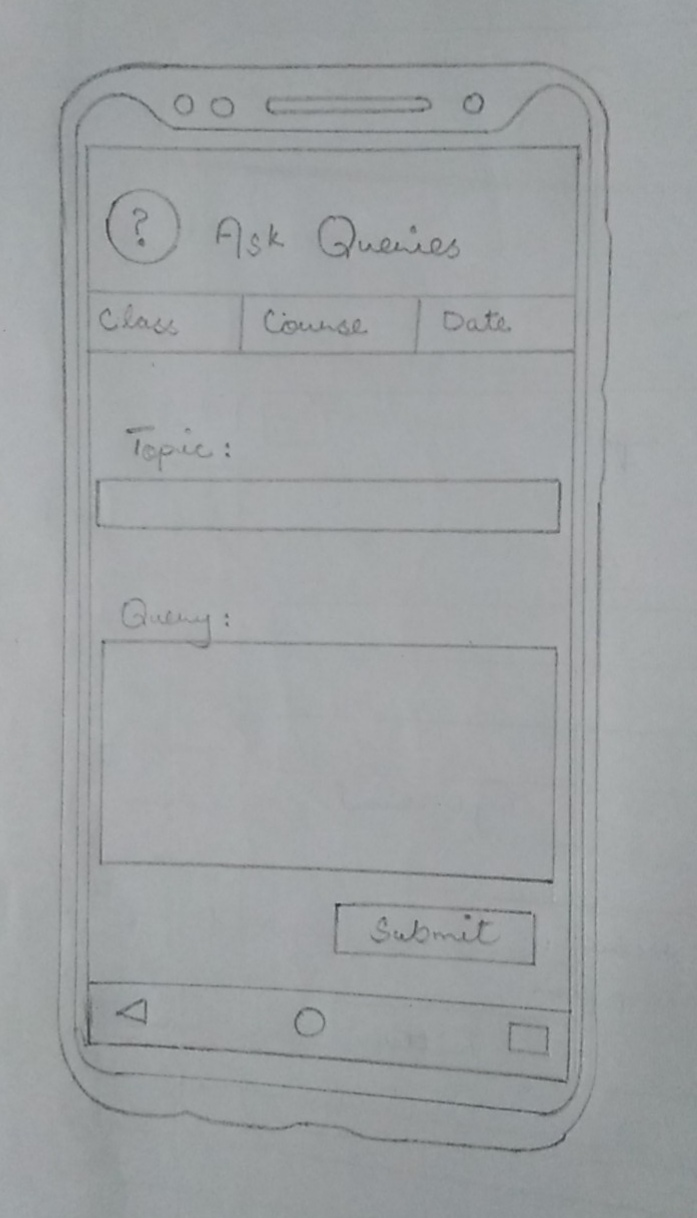 ? Ask Queries
Class Course Date
Topic:
Query:
Submit